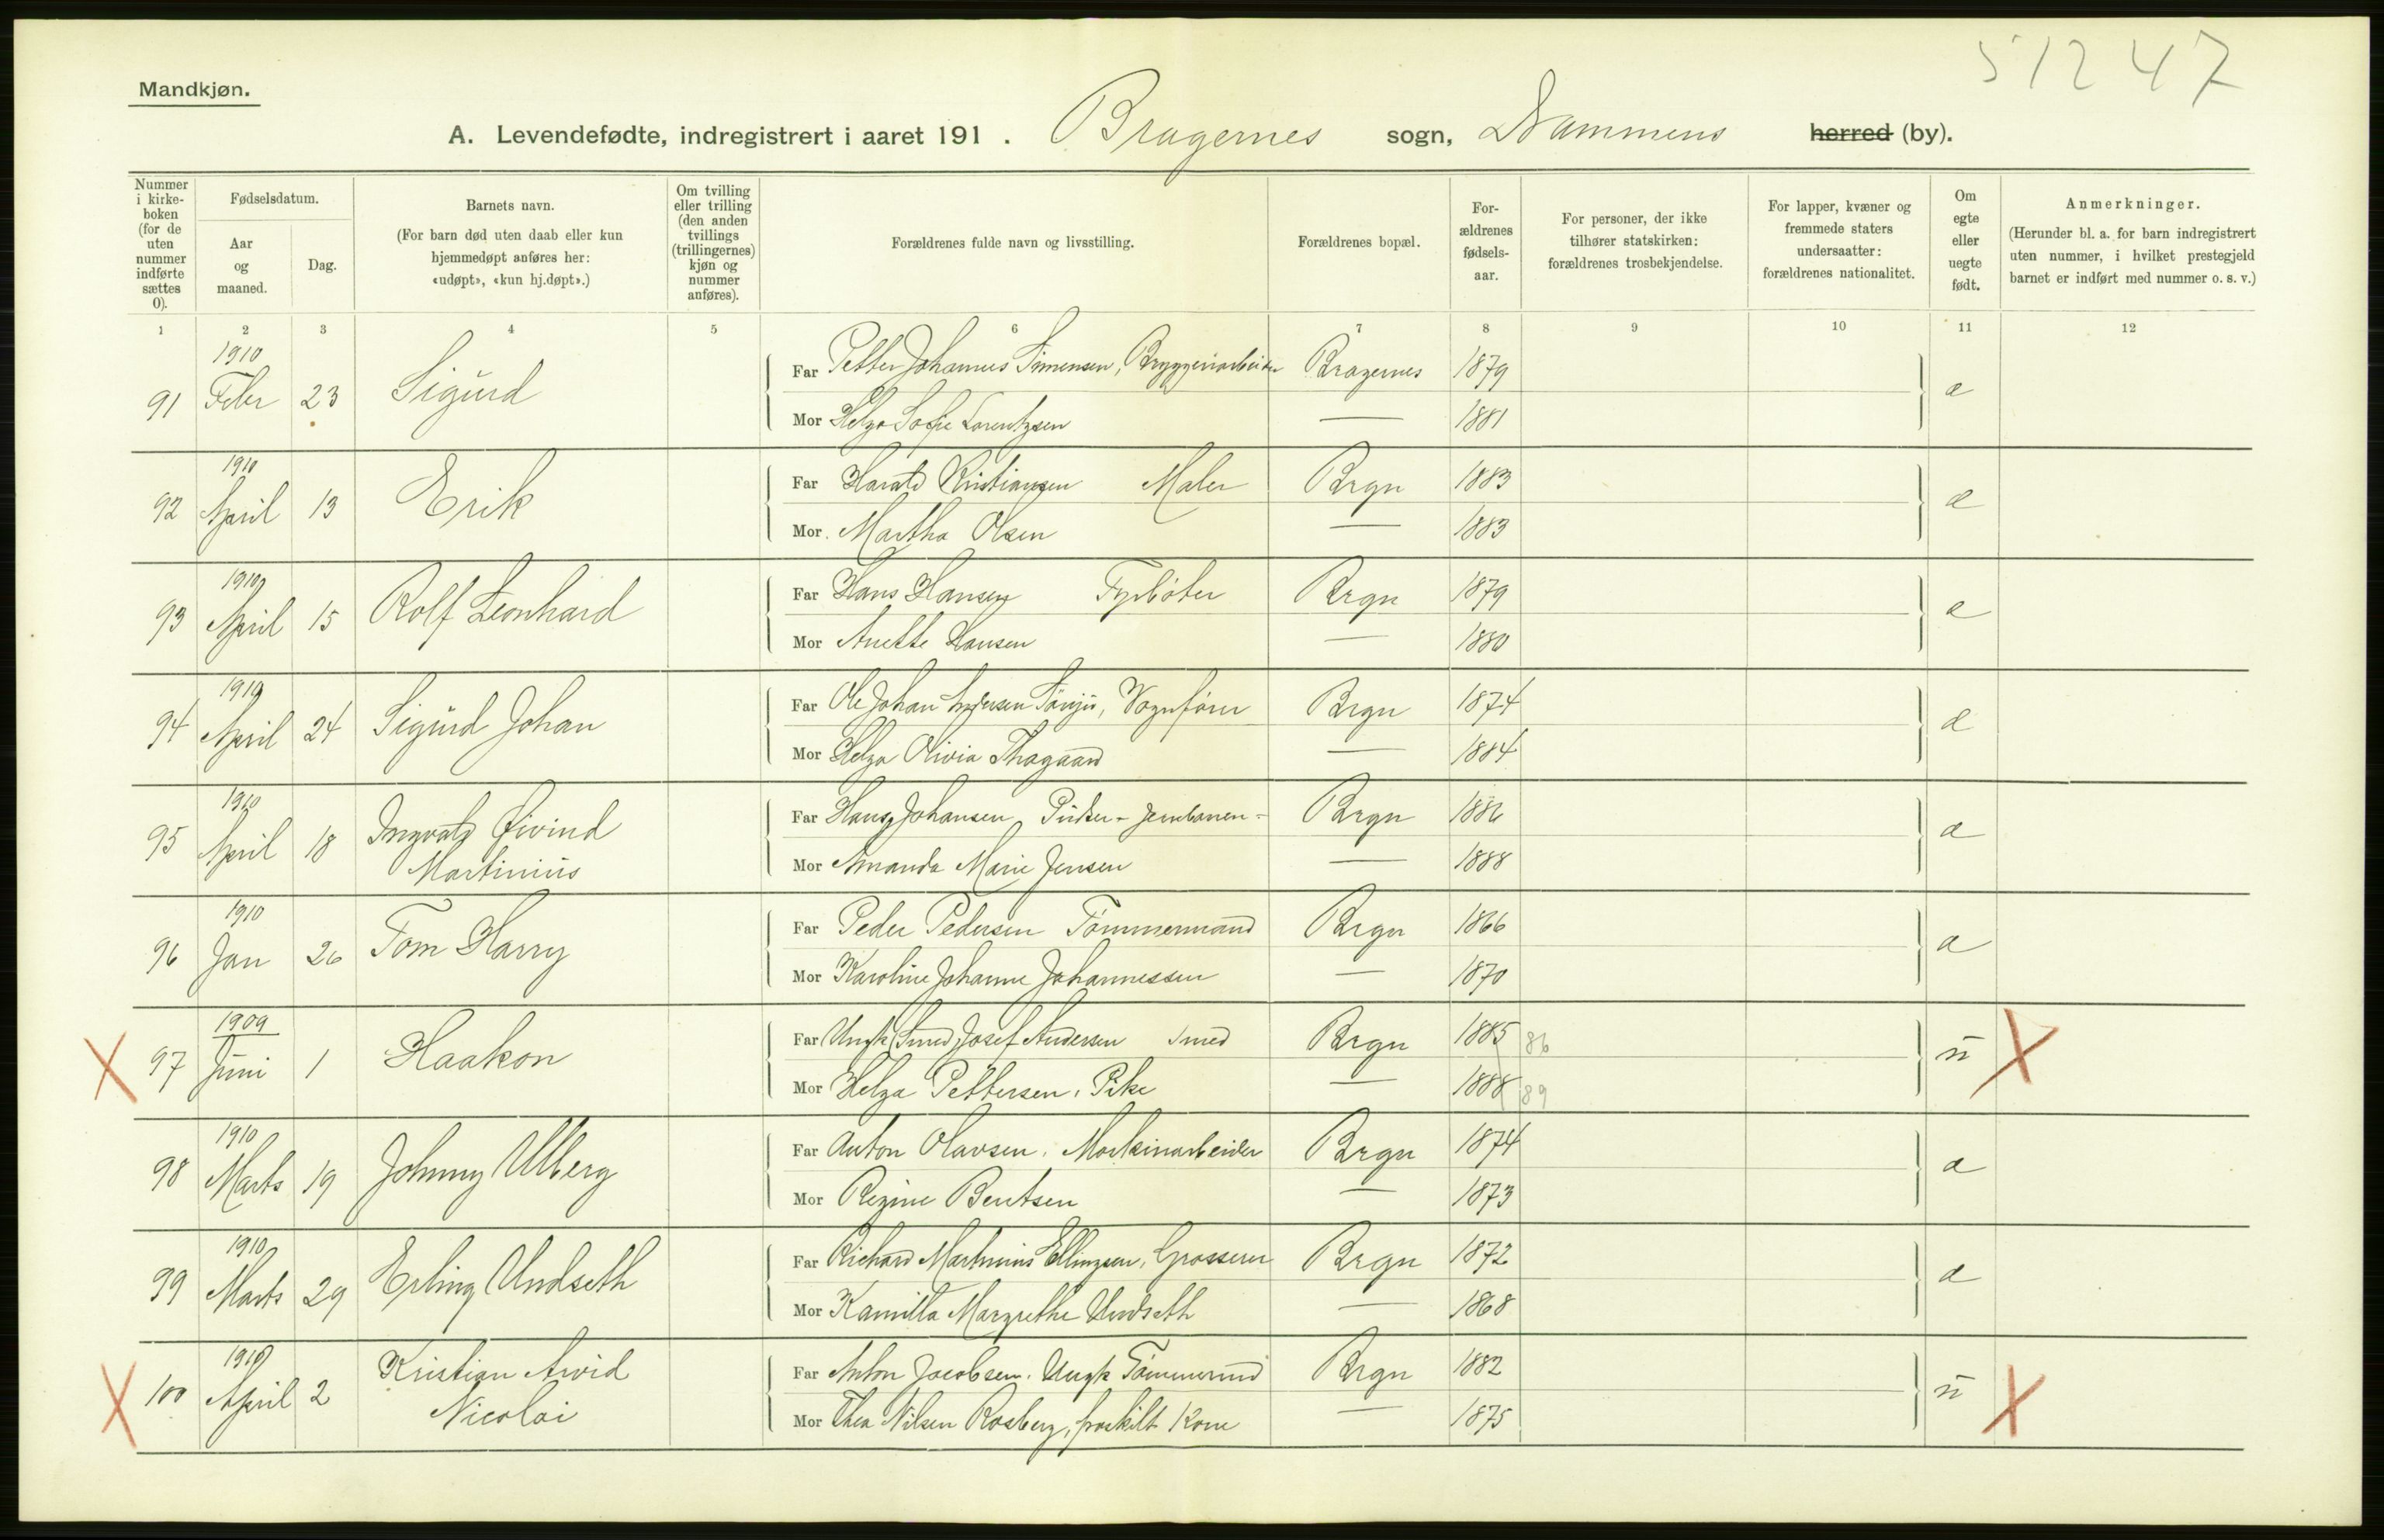 51247
Mandkjøn.
A. Levendefødte, indregistrert i aaret 191 . Bragernes sogn, Drammens herred (by).
Nummer i kirkeboken (for de uten nummer indførte sættes 0).
Fødselsdatum.
Aar og maaned.
Dag.
Barnets navn.
(For barn død uten daab eller kun hjemmedøpt anføres her: «udøpt», «kun hj.døpt».)
Om tvilling eller trilling (den anden tvillings (trillingernes) kjøn og nummer anføres).
Forældrenes fulde navn og livsstilling.
Forældrenes bopæl.
Forældrenes fødselsaar.
For personer, der ikke tilhører statskirken: forældrenes trosbekjendelse.
For lapper, kvæner og fremmede staters undersaatter: forældrenes nationalitet.
Om egte eller uegte født.
Anmerkninger.
(Herunder bl. a. for barn indregistrert uten nummer, i hvilket prestegjeld barnet er indført med nummer o. s. v.)
1 2 3 4 5 6 7 8 9 10 11 12
91 1910 Febr 23 Sigurd
Far Petter Johannes Simensen, Bryggeriarbeider Bragernes 1879 e
Mor Helga Sofie Lorentzsen — 1881
92 1910 April 13 Erik
Far Harald Kristiansen Maler Brgn 1883 e
Mor Martha Olsen — 1883
93 1910 April 15 Rolf Leonhard
Far Hans Hansen Fyrbøter Brgn 1879 e
Mor Anette Hansen — 1880
94 1910 April 24 Sigurd Johan
Far Ole Johan Vognfører Brgn 1874 e
Mor Helga Olivia Thagaard — 1884
95 1910 April 18 Ingvald Øivind Martinius
Far Hans Johansen, Pudser - Jernbanen - Brgn 1886 e
Mor Amanda Marie Jensen — 1888
96 1910 Jan 26 Tom Harry
Far Peder Pedersen Tømmermand Brgn 1866 e
Mor Karoline Johanne Johannessen — 1870
X 97 1909 Juni 1 Haakon
Far Ungk Smed Josef Andersen Smed Brgn 1885 86 u X
Mor Helga Pettersen, Pike — 1888 89
98 1910 Marts 19 Johnny Ulberg
Far Anton Olavsen, Maskinarbeider Brgn 1874 e
Mor Regine Bentsen — 1873
99 1910 Marts 29 Erling Undseth
Far Richard Martinius Ellingsen, Grosserer Brgn 1872 e
Mor Kamilla Margrethe Undseth — 1868
X 100 1910 April 2 Kristian Arvid Nicolai
Far Anton Jacobsen, Ungk Tømmermd Brgn 1882 u X
Mor Thea Nilsen Rosberg, fraskilt Kone — 1875